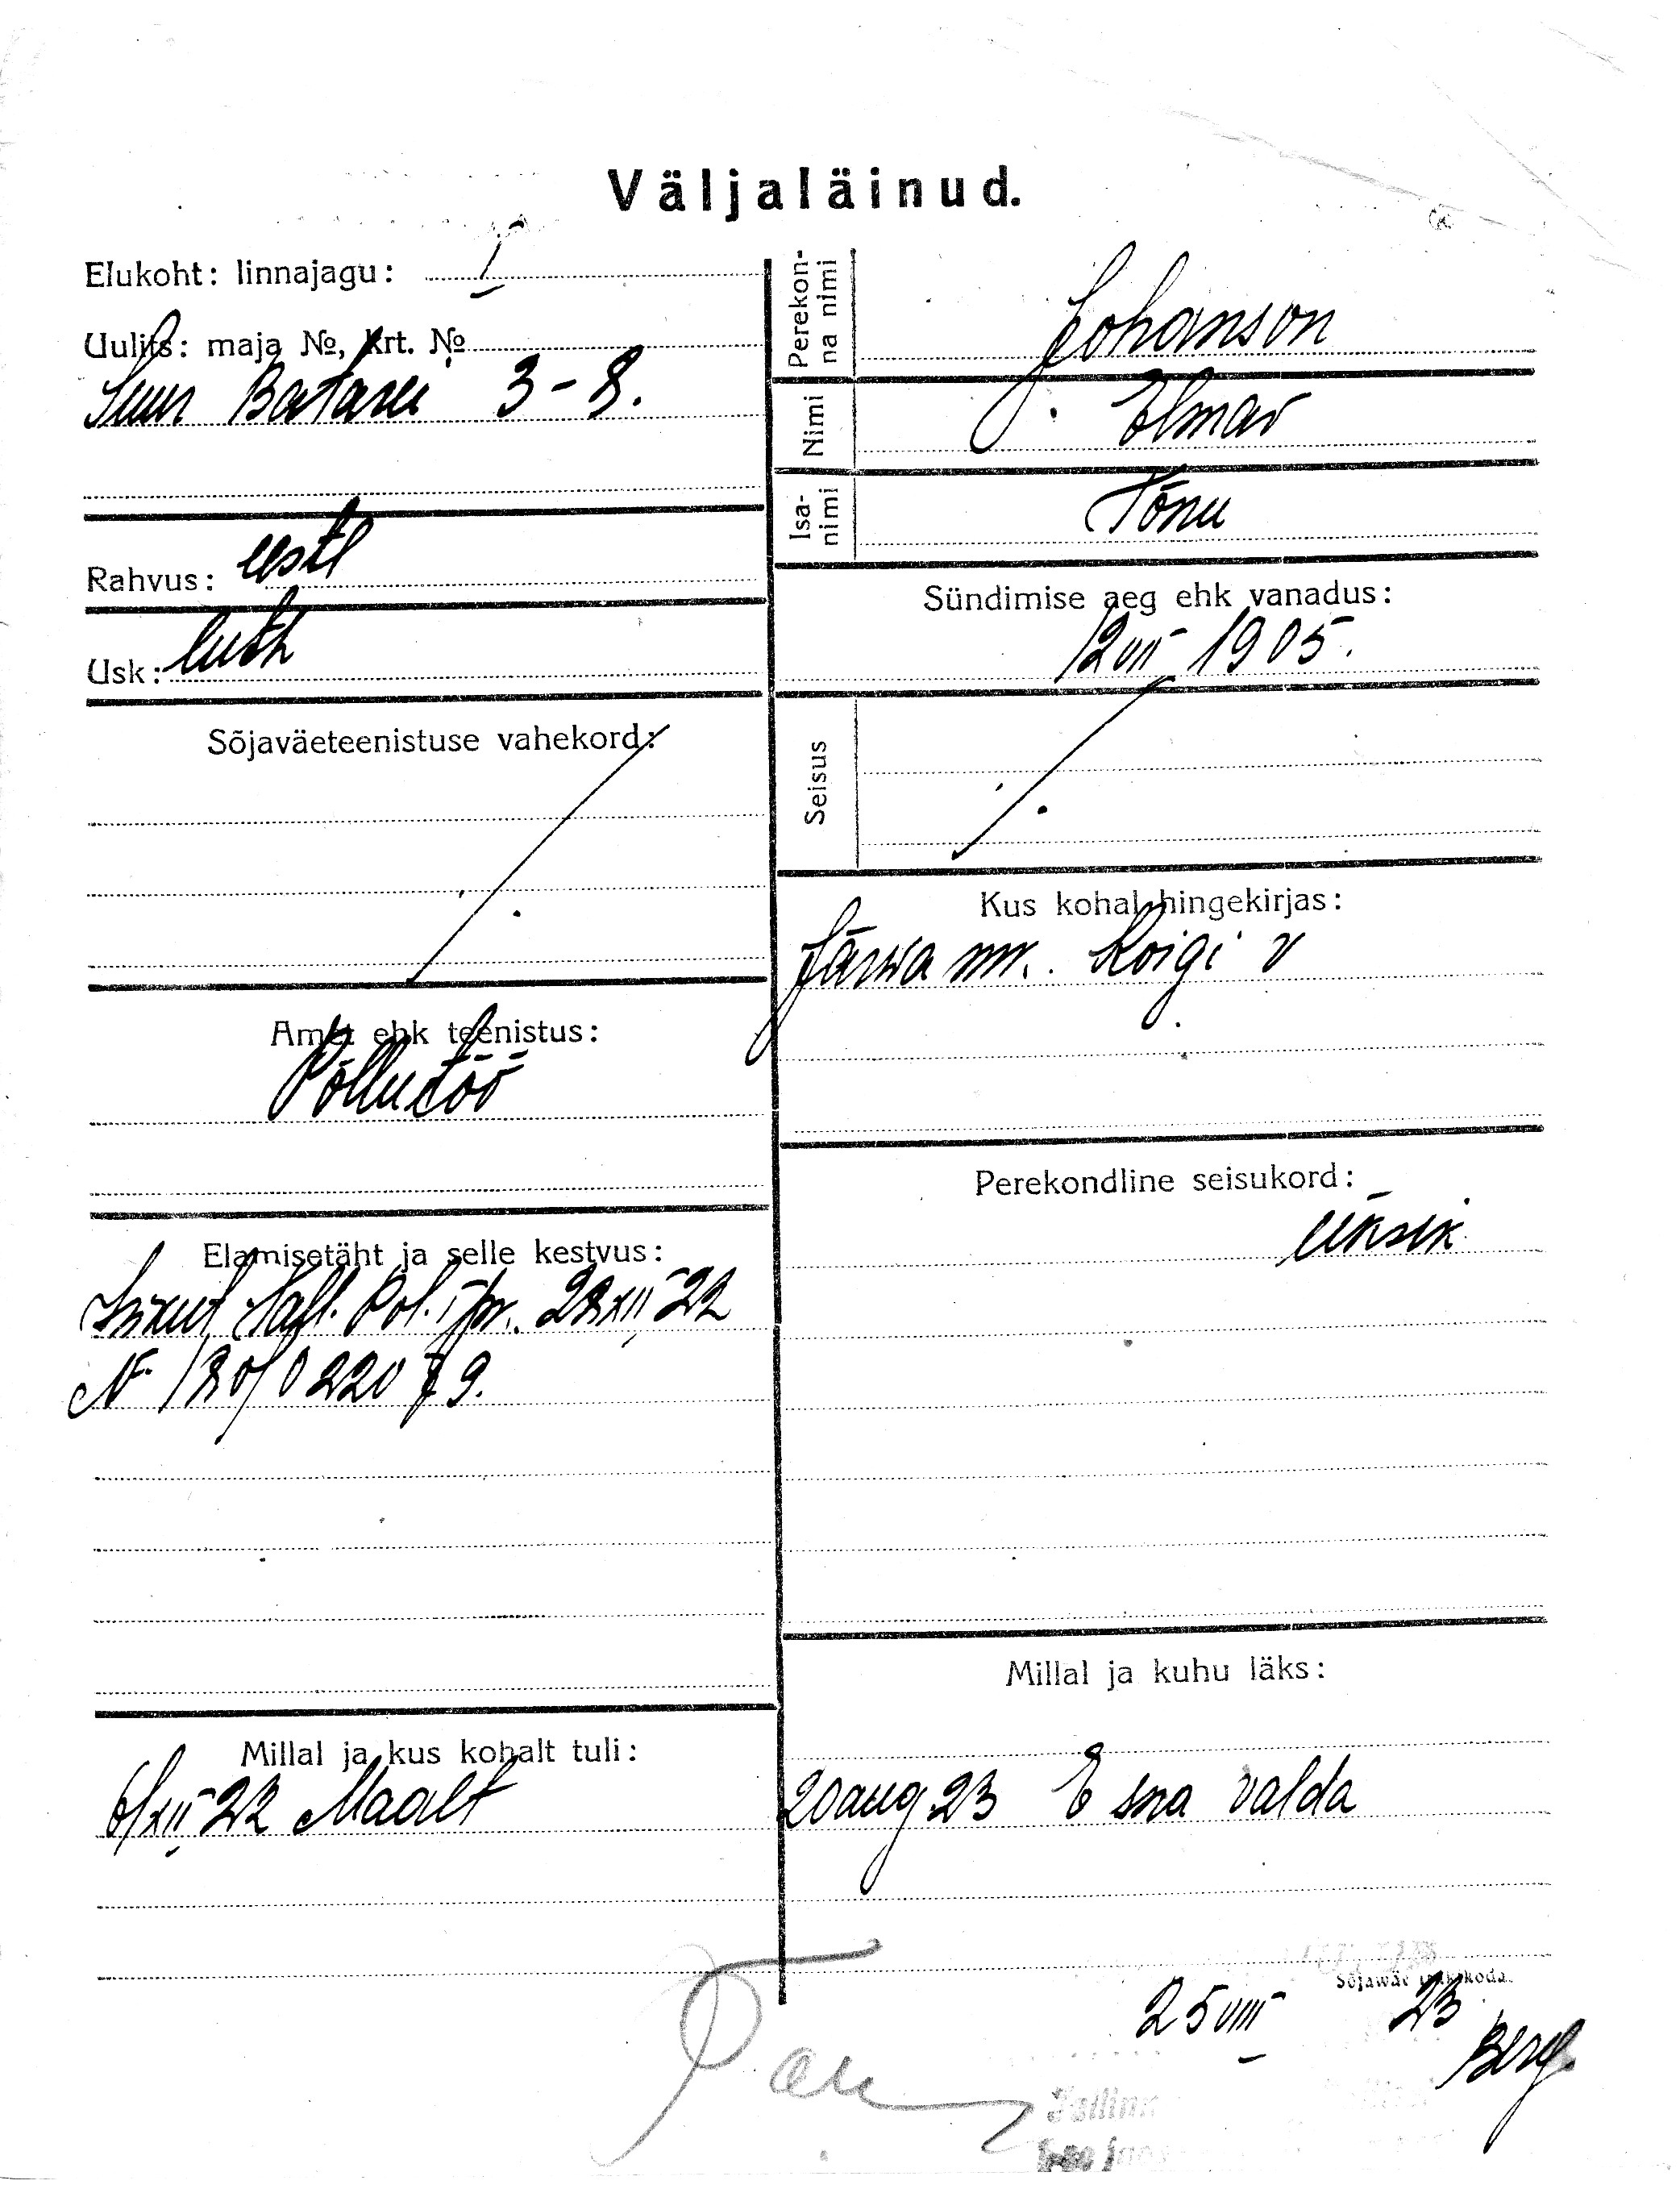 Väljaläinud.
Elukoht: linnajagu: I
Uulits: maja №, krt. №
Suur Batarei 3-8.
Rahvus: eesti
Usk: luth
Sõjaväeteenistuse vahekord:
Amet ehk teenistus:
Põllutöö
Elamisetäht ja selle kestvus:
Isikut. Tall. Pol. I jsk. 22 XII 22
N
Millal ja kus kohalt tuli:
6/XII 22 Maalt
Perekonna nimi
Johanson
Nimi
Elmar
Isanimi
Tõnu
Sündimise aeg ehk vanadus:
1905.
Seisus
Kus kohal hingekirjas:
Järwa mr. Koigi v
Perekondline seisukord:
üksik
Millal ja kuhu läks:
20 aug 23 Esna valda
Sõjawäe trükikoda.
25 VIII 23
Berg.
Tallinn